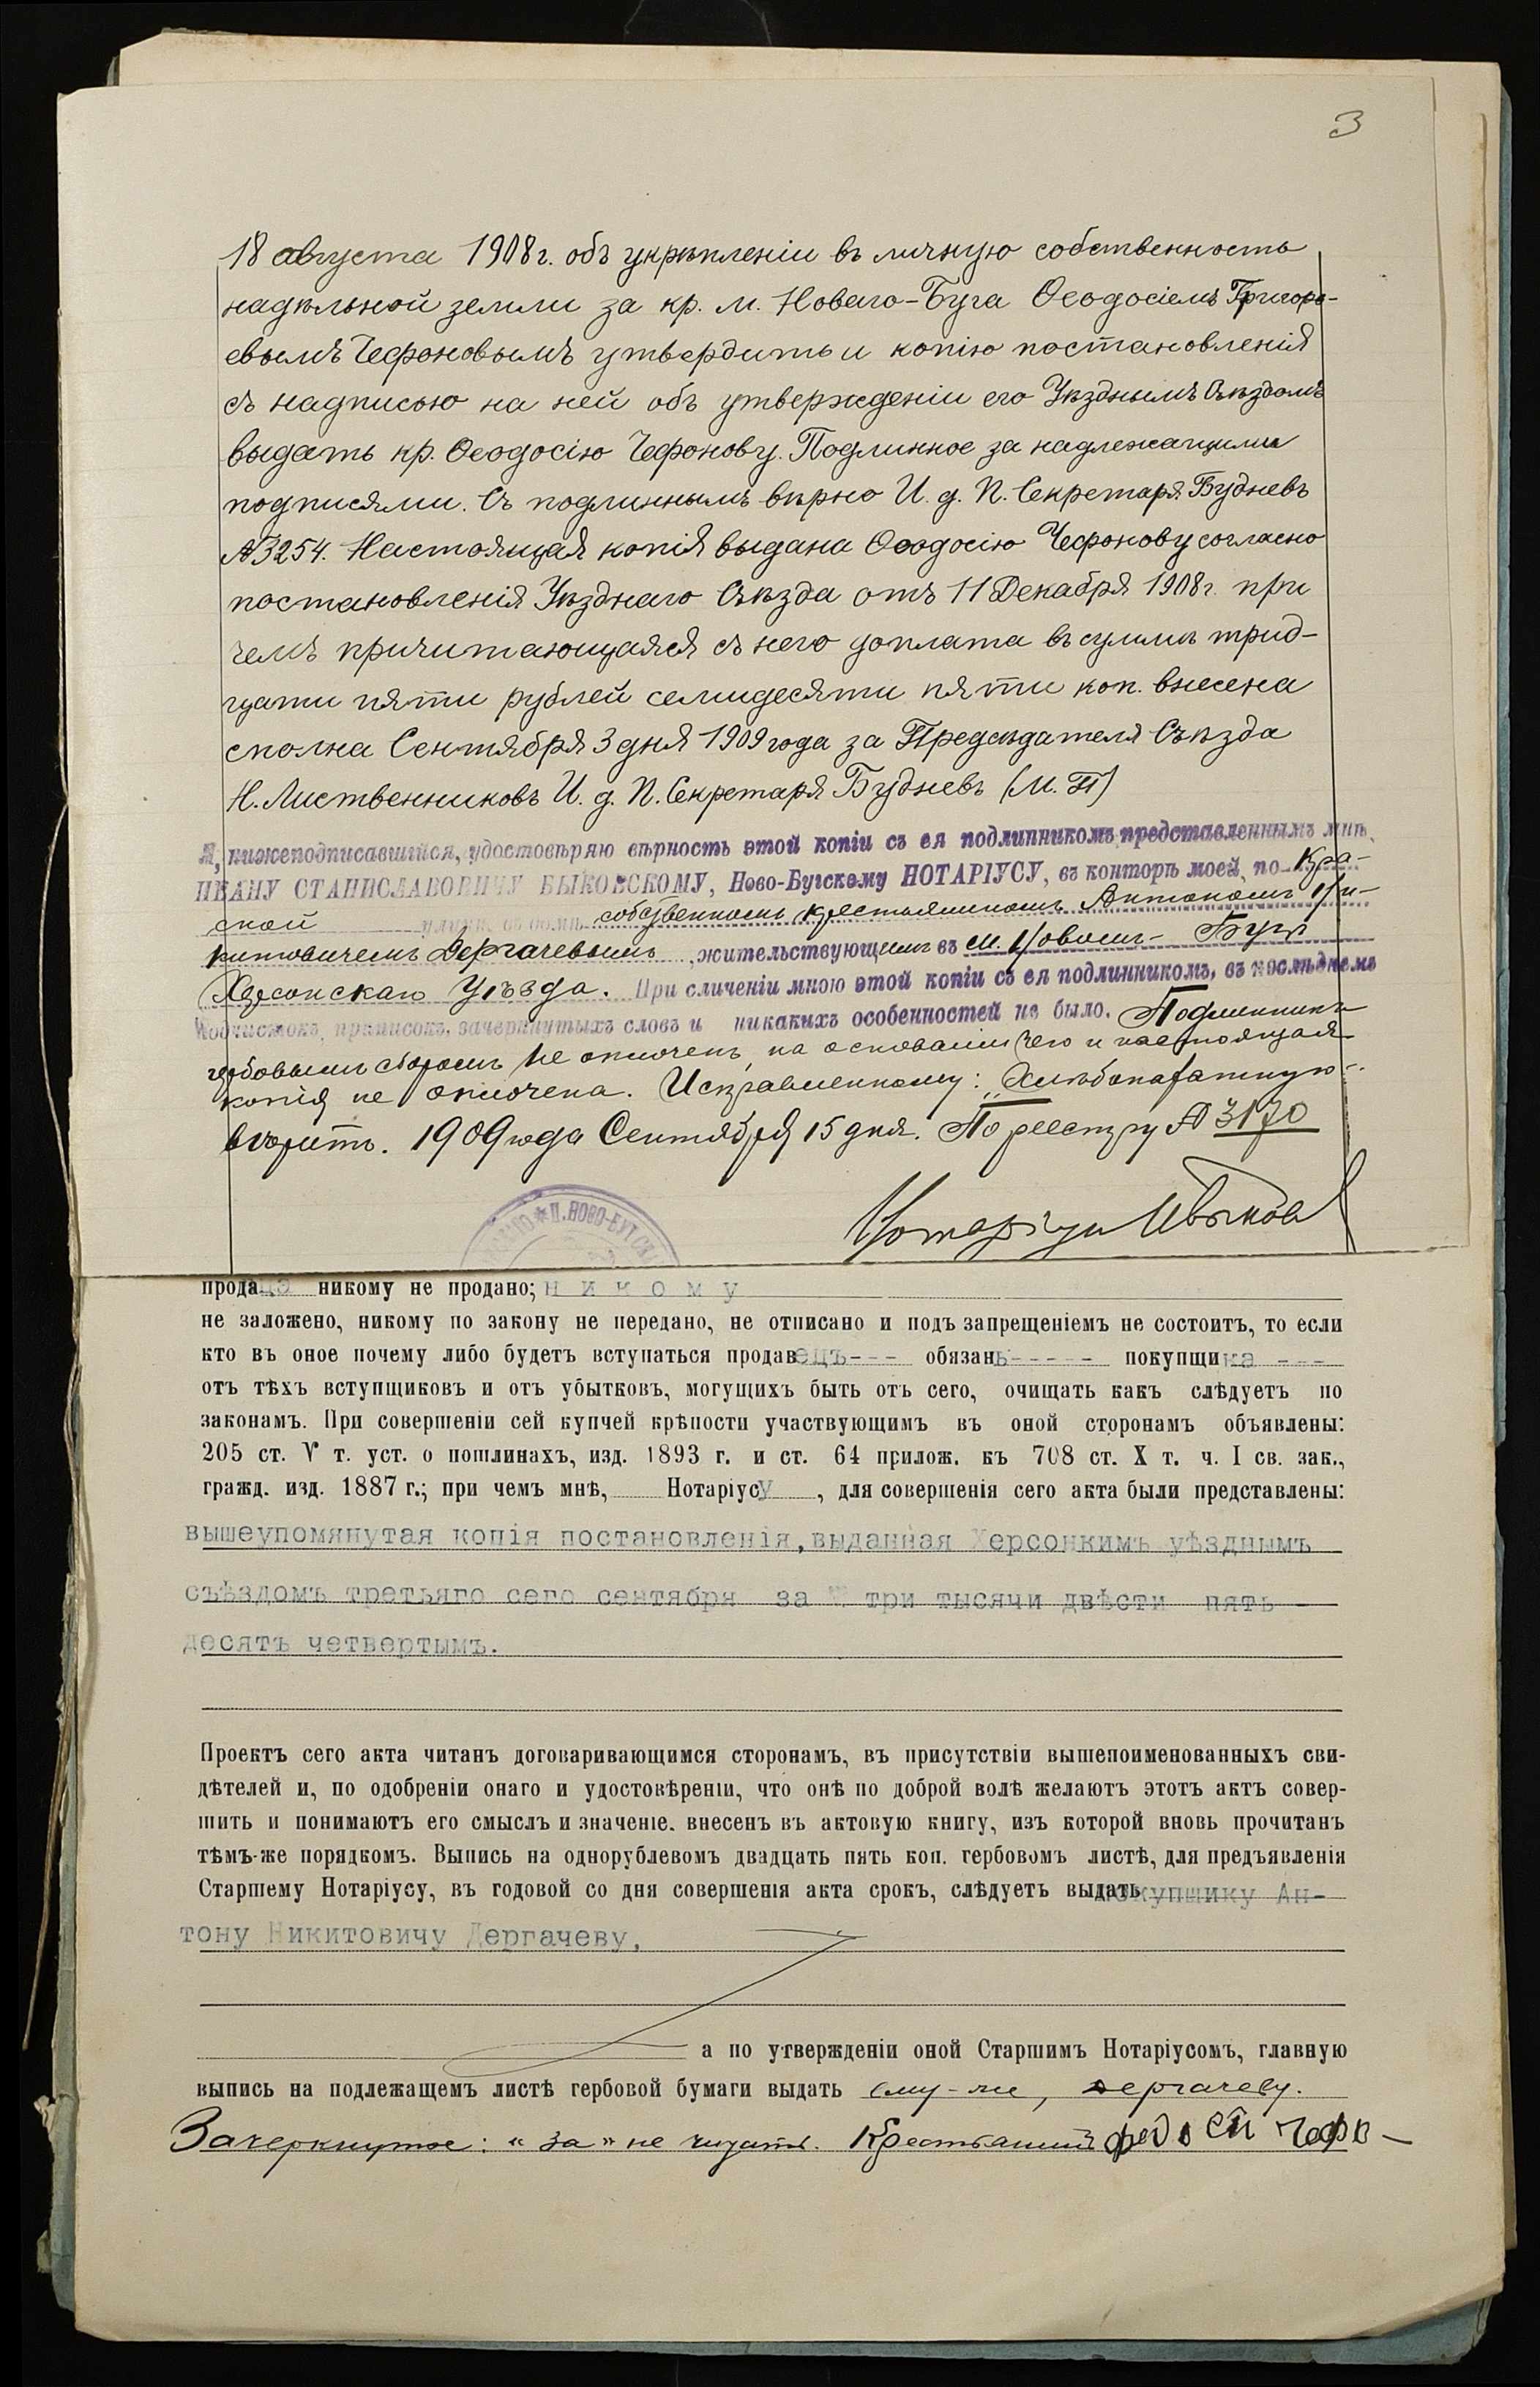 3
18 августа 1908 г. объ укрѣпленіи въ личную собственность
надѣльной земли за кр. м. Новаго-Буга Ѳеодосіемъ Григорь-
евымъ Чефоновымъ утвердить и копію постановленія
съ надписью на ней объ утвержденіи его Уѣзднымъ Съѣздомъ
выдать кр. Ѳеодосію Чефонову. Подлинное за надлежащими
подписями. Съ подлиннымъ вѣрно И. д. П. Секретаря Будневъ
№3254. Настоящая копія выдана Ѳеодосію Чефонову согласно
постановленія Уѣзднаго Съѣзда отъ 11 Декабря 1908 г. при
чемъ причитающаяся съ него доплата въ суммѣ трид-
цати пяти рублей семидесяти пяти коп. внесена
сполна Сентября 3 дня 1909 года за Предсѣдателя Съѣзда
Н. Лиственниковъ И. д. П. Секретаря Будневъ (М. П)
Я, нижеподписавшійся, удостовѣряю вѣрность этой копіи съ ея подлинникомъ представленнымъ мнѣ,
ИВАНУ СТАНИСЛАВОВИЧУ БЫКОВСКОМУ, Ново-Бугскому НОТАРІУСУ, въ конторѣ моей, по Кра-
ской улицѣ въ домѣ собственномъ крестьяниномъ Антономъ Ни-
китовичемъ Дергачевымъ, жительствующимъ въ м. Новомъ-Бугѣ
Херсонскаго уѣзда. При сличеніи мною этой копіи съ ея подлинникомъ, въ послѣднемъ
подчистокъ, приписокъ, зачеркнутыхъ словъ и никакихъ особенностей не было. Подлинникъ
гербовымъ сборомъ не оплоченъ, на основаніи чего и настоящая
копія не оплочена. Исправленному:
вѣрить. 1909 года Сентября 15 дня. По реестру № 3170
Нотаріусъ ИБыков
П. НОВО-БУГСК
продаца никому не продано; никому
не заложено, никому по закону не передано, не отписано и подъ запрещеніемъ не состоитъ, то если
кто въ оное почему либо будетъ вступаться продавецъ--- обязанъ----- покупщика ---
отъ тѣхъ вступщиковъ и отъ убытковъ, могущихъ быть отъ сего, очищать какъ слѣдуетъ по
законамъ. При совершеніи сей купчей крѣпости участвующимъ въ оной сторонамъ объявлены:
205 ст. V т. уст. о пошлинахъ, изд. 1893 г. и ст. 64 прилож. къ 708 ст. X т. ч. I св. зак.,
гражд. изд. 1887 г.; при чемъ мнѣ, Нотаріусу, для совершенія сего акта были представлены:
вышеупомянутая копія постановленія, выданная Херсонкимъ уѣзднымъ
съѣздомъ третьяго сего сентября за № три тысячи двѣсти пять
десятъ четвертымъ.
Проектъ сего акта читанъ договаривающимся сторонамъ, въ присутствіи вышепоименованныхъ сви-
дѣтелей и, по одобреніи онаго и удостовѣреніи, что онѣ по доброй волѣ желаютъ этотъ актъ совер-
шить и понимаютъ его смыслъ и значеніе. внесенъ въ актовую книгу, изъ которой вновь прочитанъ
тѣмъ-же порядкомъ. Выпись на однорублевомъ двадцать пять коп. гербовомъ листѣ, для предъявленія
Старшему Нотаріусу, въ годовой со дня совершенія акта срокъ, слѣдуетъ выдать покупщику Ан-
тону Никитовичу Дергачеву,
а по утвержденіи оной Старшимъ Нотаріусомъ, главную
выпись на подлежащемъ листѣ гербовой бумаги выдать ему-же, Дергачеву.
Зачеркнутое: "за" не читать. Крестьянинъ федосй Чефо-